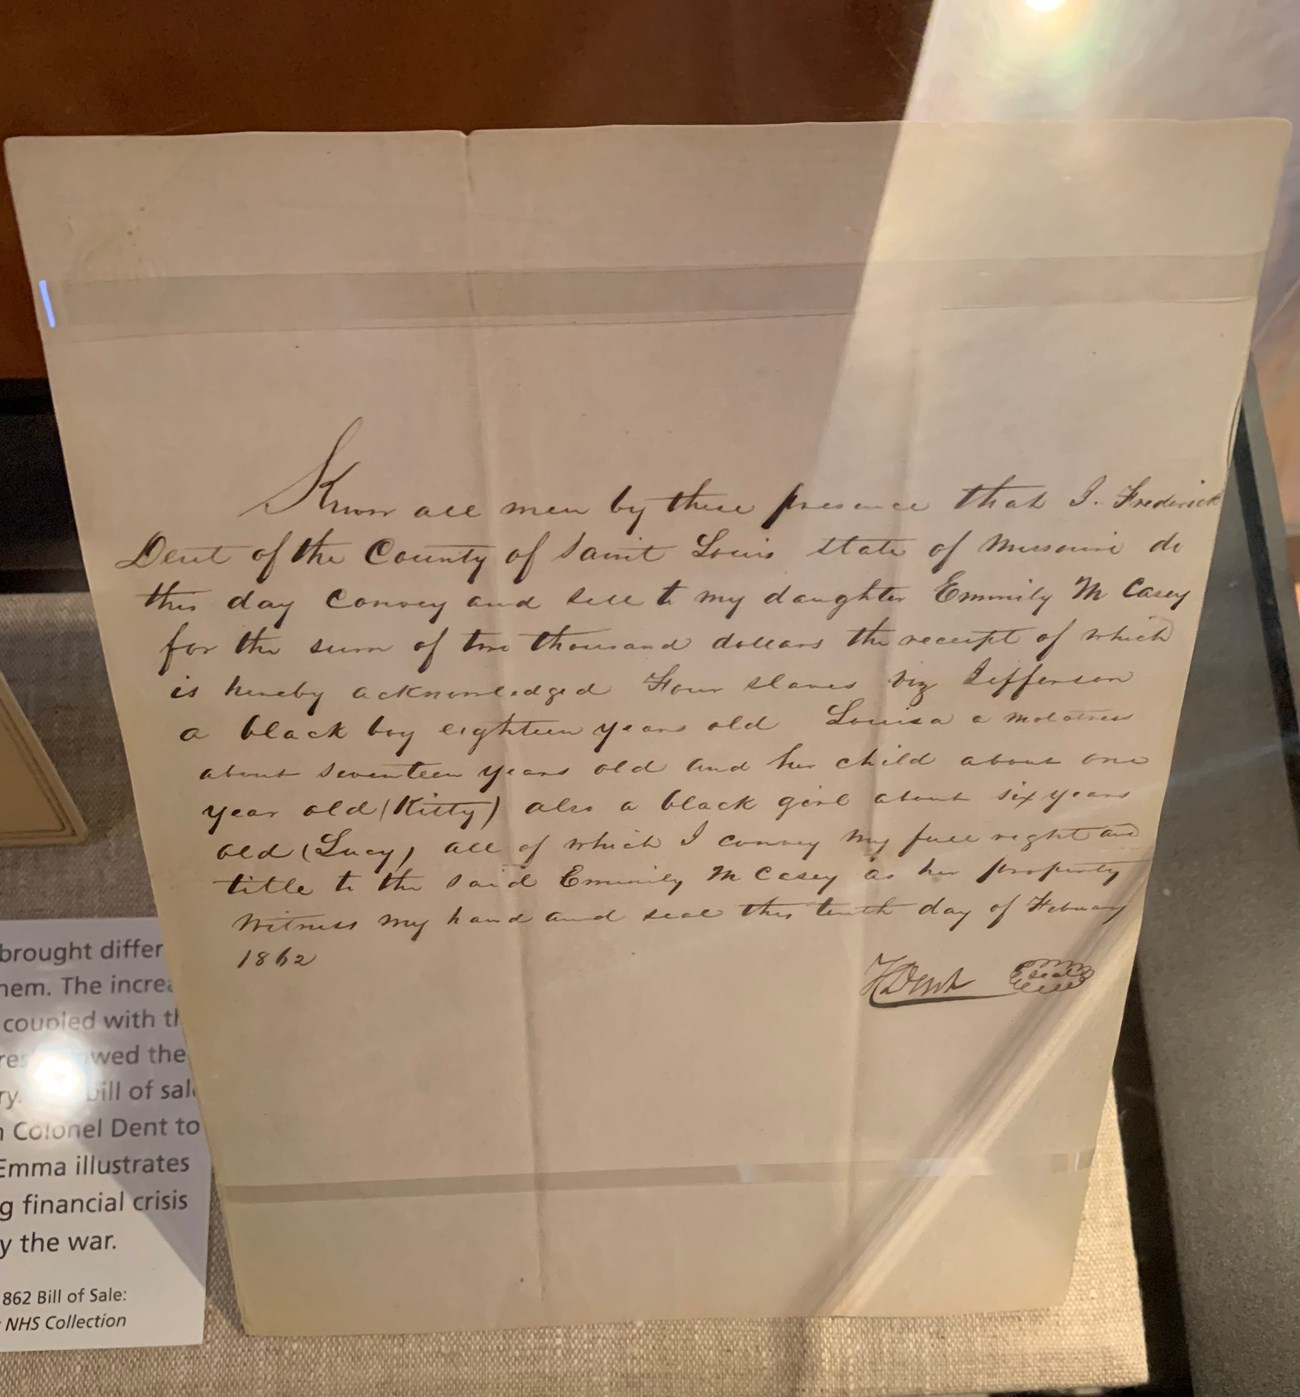 Know all men by these presence that I. Frederick
Dent of the County of Saint Louis state of Missouri do
this day Convey and sell to my daughter Emmily M Casey
for the sum of two thousand dollars the receipt of which
is hereby acknowledged Four slaves viz Jefferson
a black boy eighteen years old Louisa a molatress
about seventeen years old and her child about one
year old (Kitty) also a black girl about six years
old (Lucy) all of which I convey my full right and
title to the said Emmily M Casey as her property
Witness my hand and seal this tenth day of Febuary
1862
F Dent seal
brought differ
hem. The increa
coupled with th
wed the
ry. bill of sale
Colonel Dent to
Emma illustrates
g financial crisis
y the war.
862 Bill of Sale:
NHS Collection